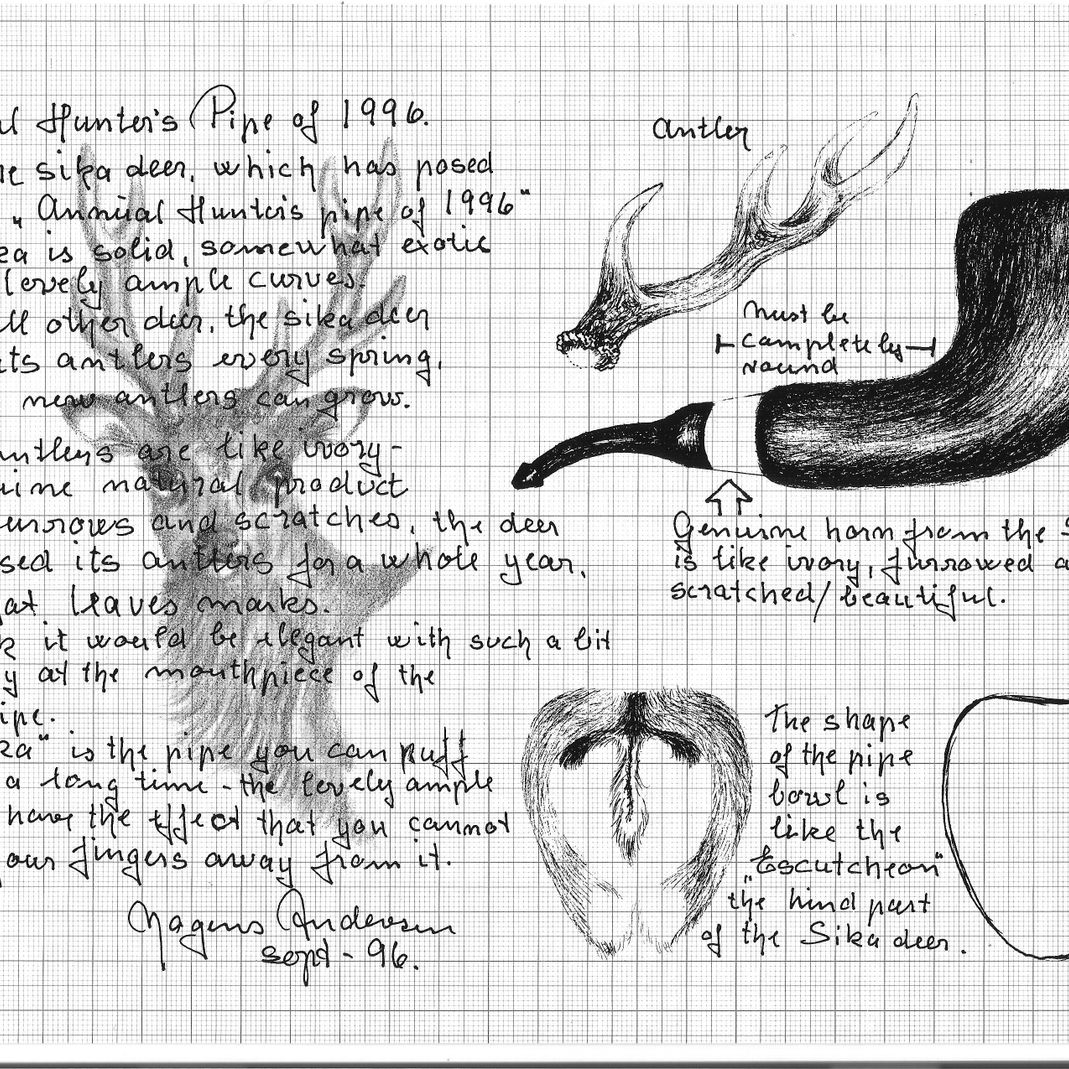 al Hunter's Pipe of 1996.
he sika deer, which has posed
„Annual Hunter's pipe of 1996"
ka is solid, somewhat exotic
lovely ample curves.
all other deer, the sika deer
its antlers every spring,
new antlers can grow.
antlers are like ivory-
uine natural product
urrows and scratches, the deer
sed its antlers for a whole year,
hat leaves marks.
k it would be elegant with such a bit
y at the mouthpiece of the
ipe.
ka" is the pipe you can puff
a long time - the lovely ample
have the effect that you cannot
our fingers away from it.
Mogens Andersen
sept - 96.
Antler
Must be
completely
round
Genuine horn from the S
is like ivory, furrowed a
scratched/beautiful.
The shape
of the pipe
bowl is
like the
„Escutcheon"
the hind part
of the Sika deer.